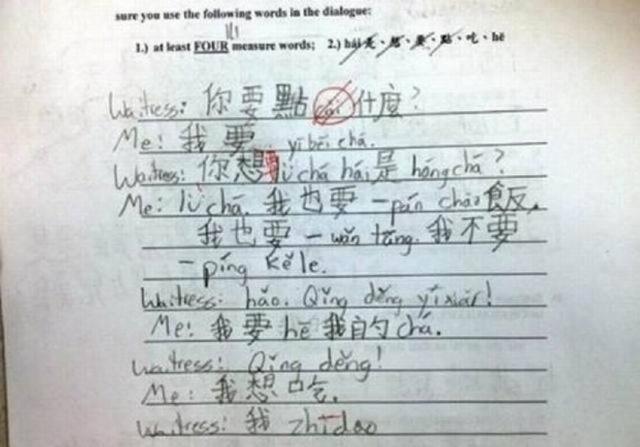 sure you use the following words in the dialogue:
1.) at least FOUR measure words; 2.) hái是、想、要、點、吃、hē
Waitress: 你要點cài什麼?
Me: 我要 yì bēi chá.
Waitress: 你想要lǜ chá hái是 hóng chá?
Me: lǜ chá. 我也要一pán chǎo飯.
我也要一wǎn tāng. 我不要
一píng kělè.
Waitress: hǎo. Qǐng děng yíxiàr!
Me: 我要 hē 我的 chá.
Waitress: Qǐng děng!
Me: 我想吃.
Waitress: 我 zhīdao